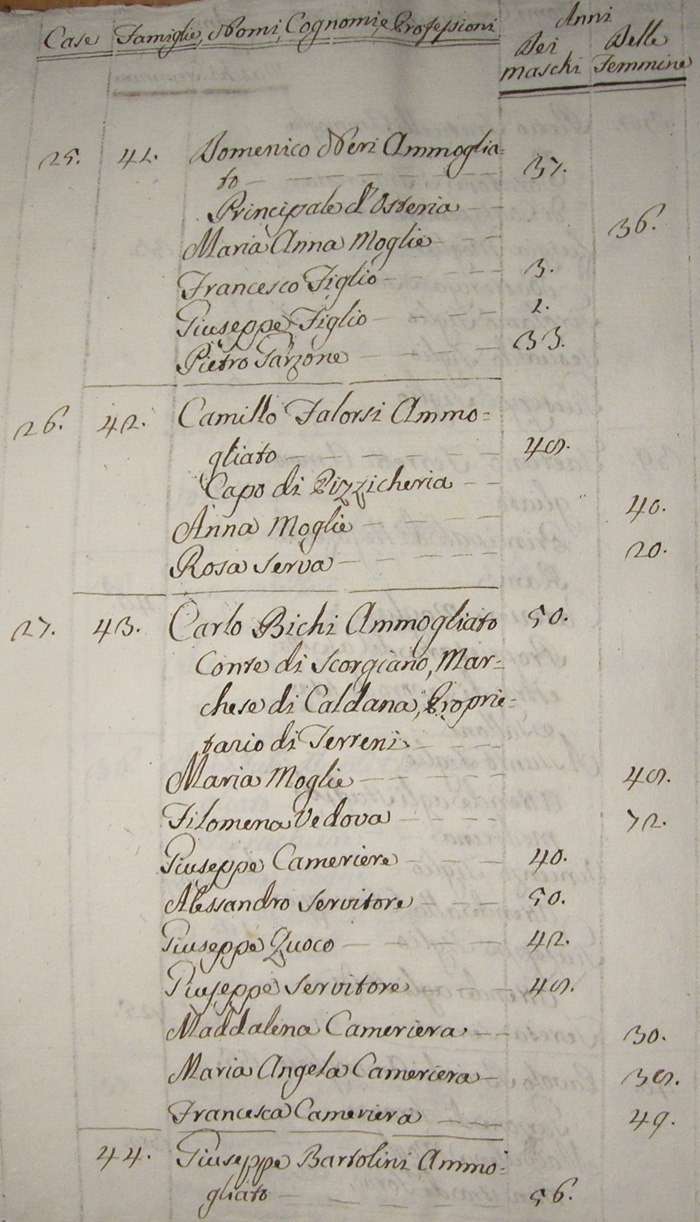 Case Famiglie, Nomi, Cognomi, e Professioni Anni
Dei maschi Delle Femmine
25. 41. Domenico Neri Ammoglia-
to 37.
Principale d'Osteria
Maria Anna Moglie 36.
Francesco Figlio 3.
Giuseppe Figlio
Pietro Garzone 33.
26. 42. Camillo Falorsi Ammo=
gliato 45.
Capo di Pizzicheria
Anna Moglie 40.
Rosa Serva 20.
27. 43. Carlo Bichi Ammogliato 50.
Conte di Scorgiano, Mar-
chese di Caldana, Proprie=
tario di Terreni
Maria Moglie 45.
Filomena Vedova 72.
Giuseppe Cameriere 40.
Alessandro Servitore 50.
Giuseppe Quoco 42.
Giuseppe Servitore 45.
Maddalena Cameriera 30.
Maria Angela Cameriera 35.
Francesca Cameriera 49.
44. Giuseppe Bartolini Ammo-
gliato 56.